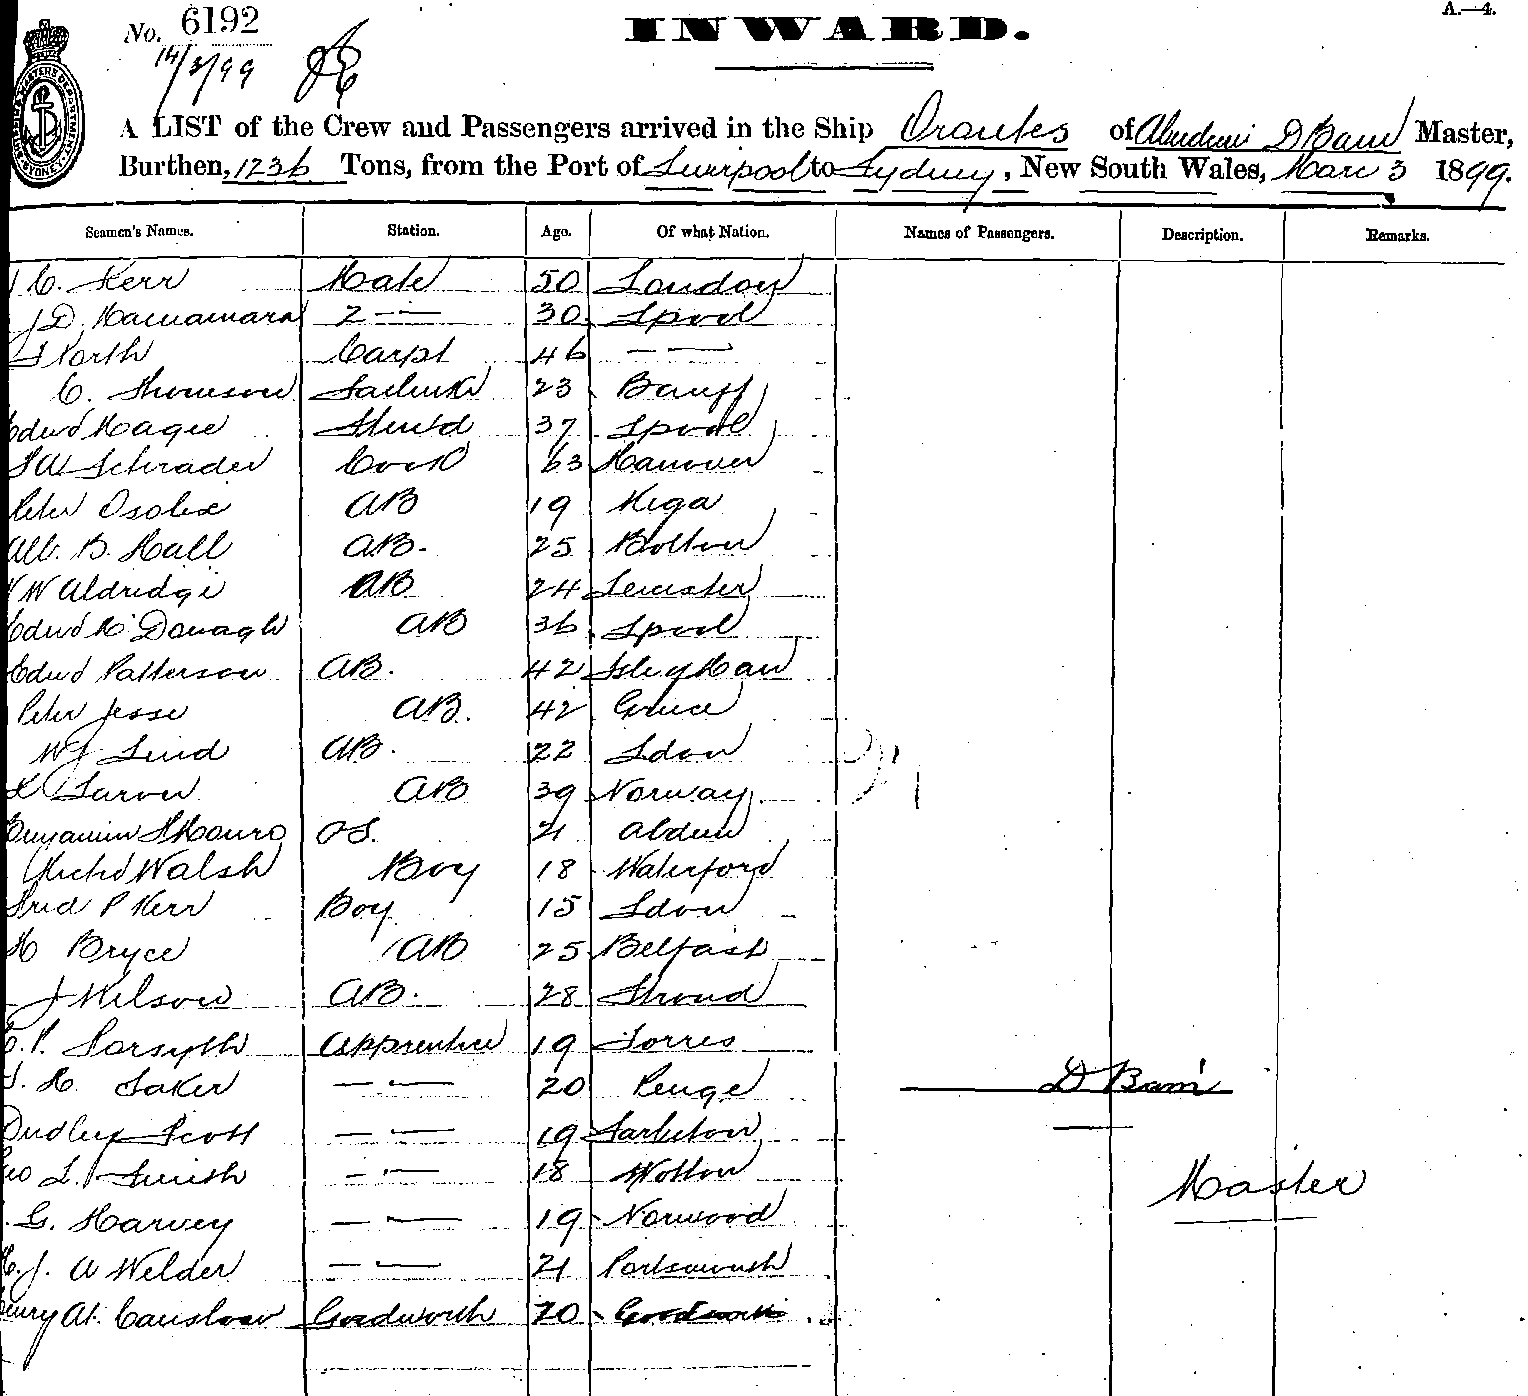 No. 6192
INWARD.
A.—4.
14/3/99
A LIST of the Crew and Passengers arrived in the Ship Orantes of D Bain Master,
Burthen, 1236 Tons, from the Port of Liverpool to Sydney, New South Wales, Mar 3 1899.
Seamen's Names. Station. Age. Of what Nation. Names of Passengers. Description. Remarks.
C. Kerr Mate 50 London
J D Macnamara 2 —— 30 Lpool
North Carpt 46 — —
C. Thomson 23 Banff
Edwd Magee Stew'd 37 Lpool
Schrader Cook 63 Hanover
Peter AB 19 Riga
Alb. B. Hall AB. 25 Bolton
W Aldridge AB 24 Leicester
Edwd McDonagh AB 36 Lpool
Edwd Patterson AB. 42 Isle of Man
Peter Jesse AB. 42 Greece
W J Lind AB. 22 Ldon
AB 39 Norway
Benjamin Monro OS. 21 Abdeen
Michd Walsh Boy 18 Waterford
Fred P Kerr Boy 15 Ldon
H Bryce AB 25 Belfast
J Wilson AB. 28 Stroud
P. Forsyth Apprentice 19 Forres
H. Laker — — 20 Penge
D Bain
Dudley Scott — — 19 Tarleton
Geo L. Smith — — 18 Wotton
Master
G. Harvey — — 19 Norwood
H. J. A Welder — — 21 Portsmouth
Henry At. Goodworth 20